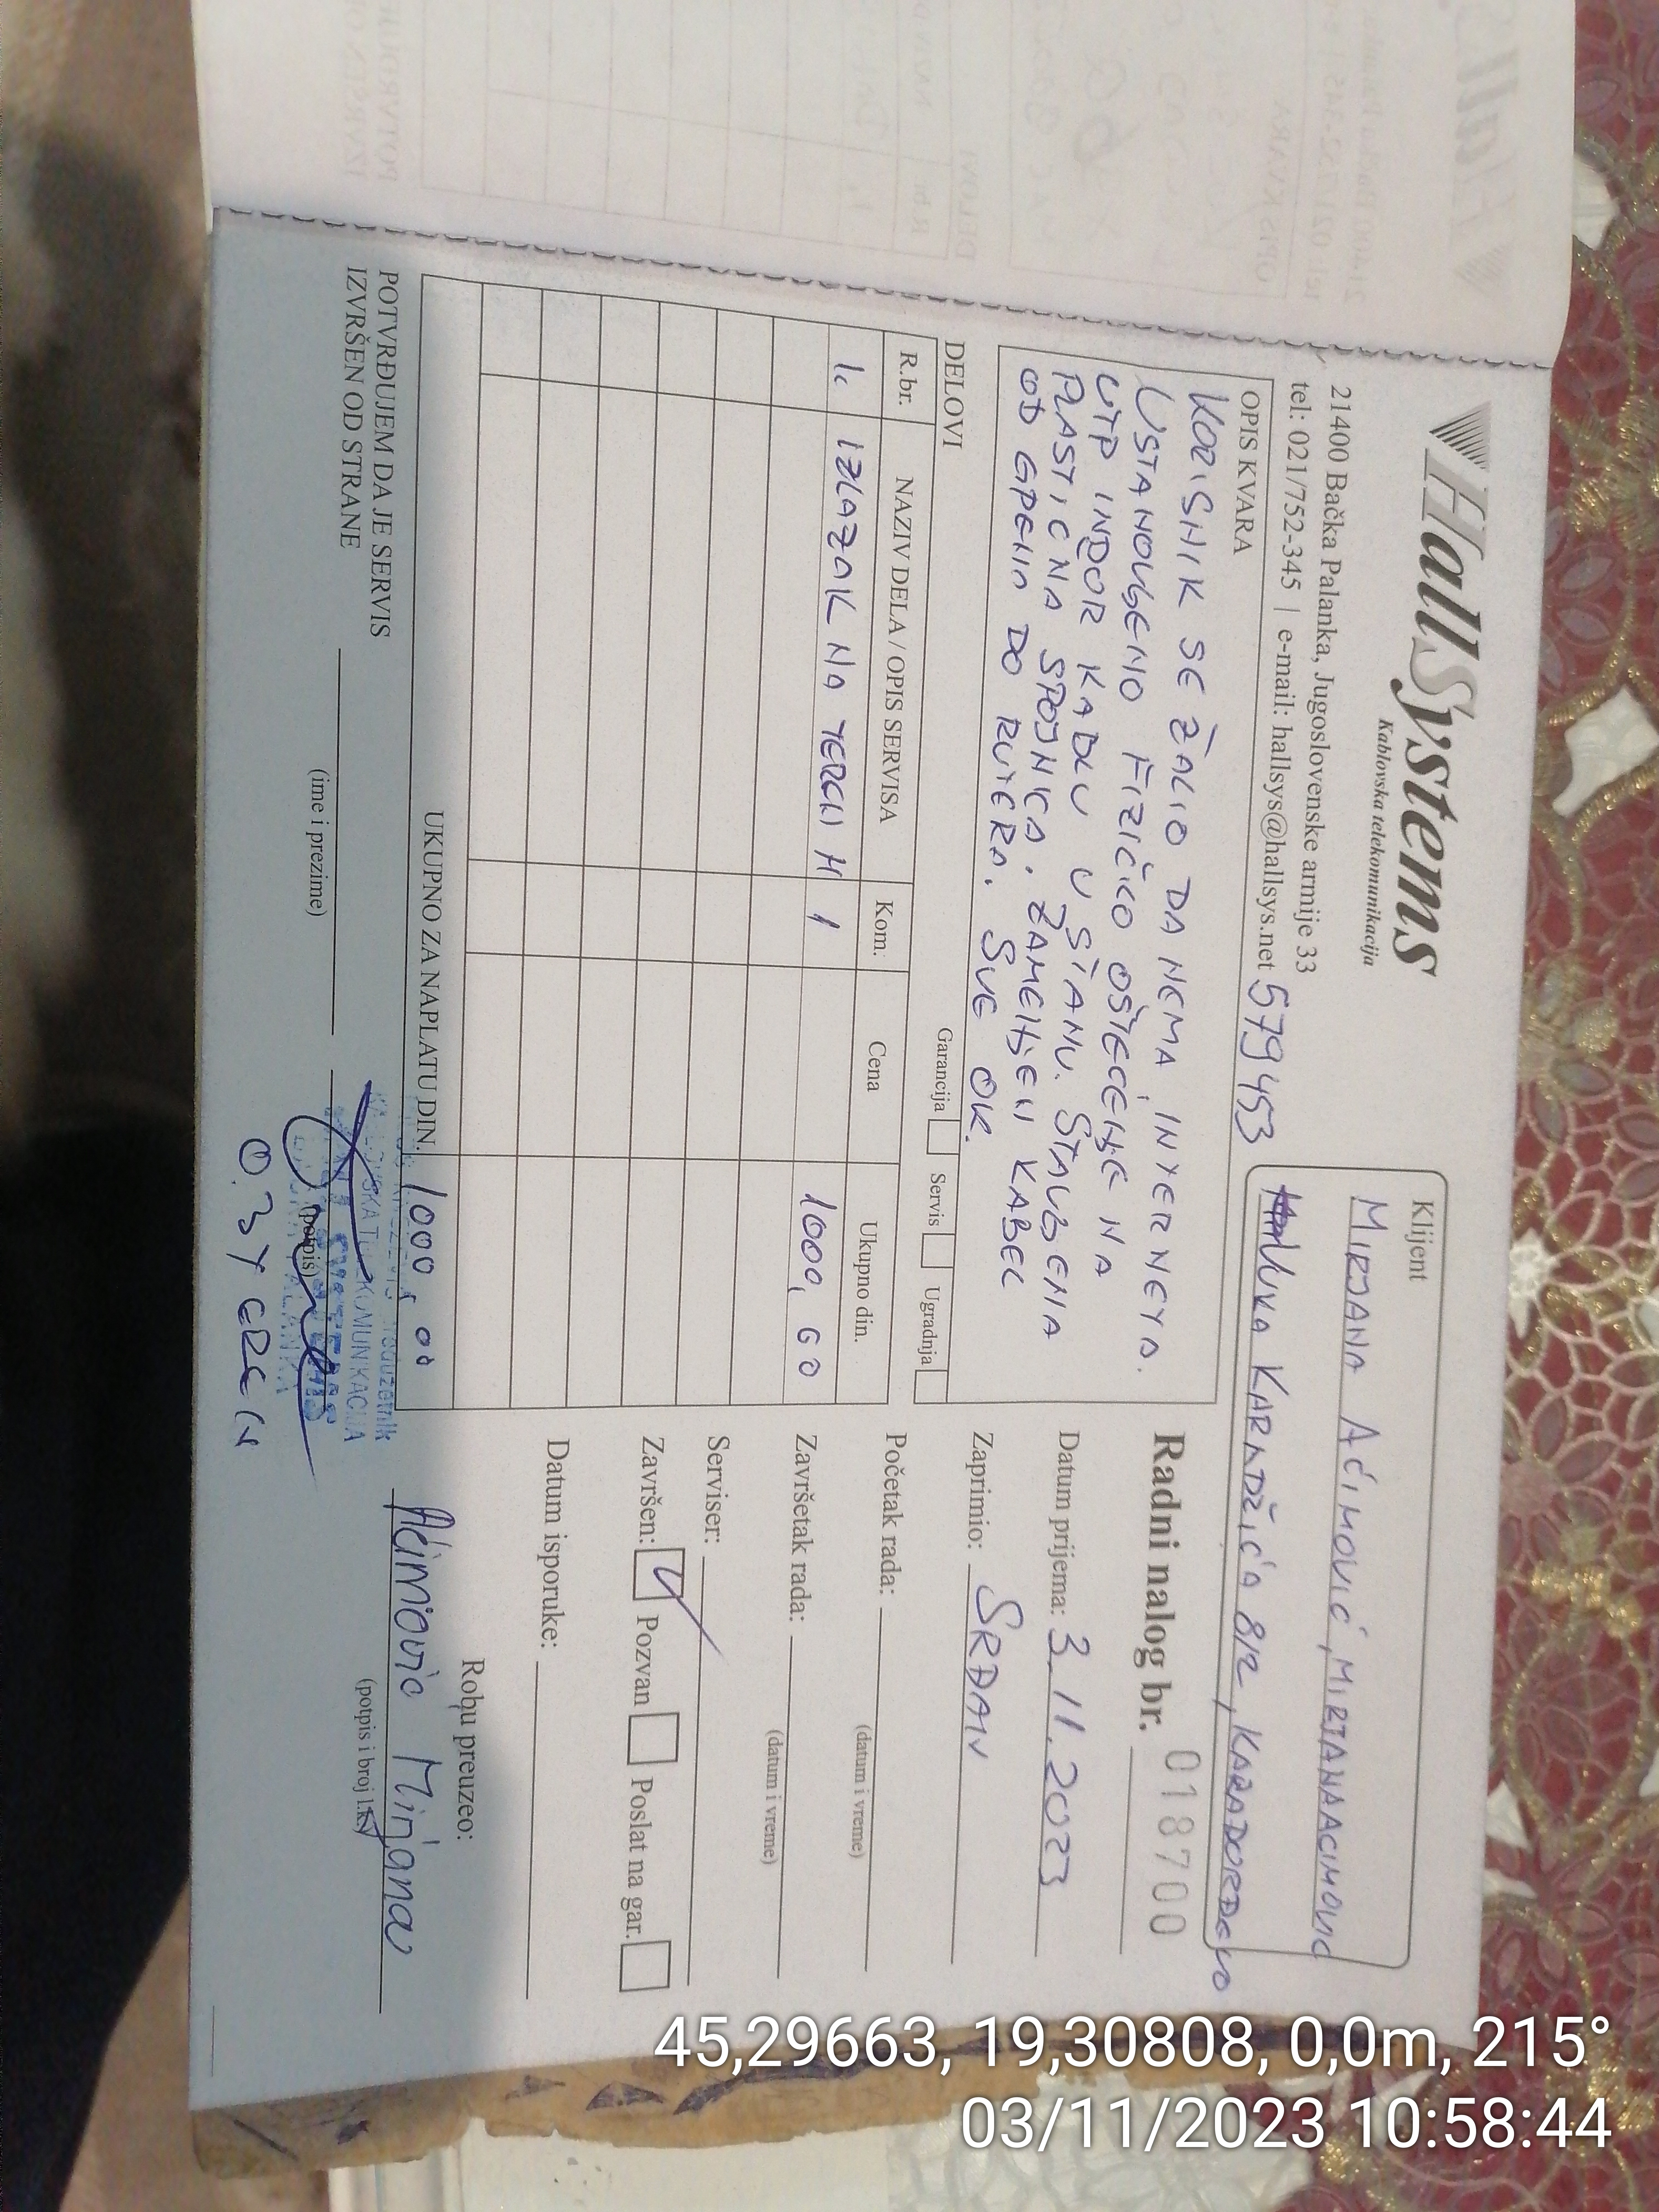 HallSystems
Kablovska telekomunikacija
21400 Bačka Palanka, Jugoslovenske armije 33
tel: 021/752-345 | e-mail: hallsys@hallsys.net 579453
Klijent
MIRJANA AĆIMOVIĆ, MIRJANAACIMOVIC
VUKA KARADŽIĆA 8/2, KARAĐORĐEVO
OPIS KVARA
KORISNIK SE ŽALIO DA NEMA INTERNETA.
USTANOVLJENO FIZIČKO OŠTEĆENJE NA
UTP INDOR KABLU U STANU. STAVLJENA
PLASTIČNA SPOJNICA. ZAMENJEN KABEL
OD GPENA DO RUTERA. SVE OK.
Radni nalog br. 018700
Datum prijema: 3.11.2023
Zaprimio: SRĐAN
Početak rada:
(datum i vreme)
Završetak rada:
(datum i vreme)
Serviser:
Završen: Pozvan Poslat na gar.
Datum isporuke:
DELOVI Garancija Servis Ugradnja
R.br. NAZIV DELA / OPIS SERVISA Kom. Cena Ukupno din.
1. IZLAZAK NA TEREN 1 1000,00
UKUPNO ZA NAPLATU DIN. 1000,00
POTVRĐUJEM DA JE SERVIS
IZVRŠEN OD STRANE
(ime i prezime)
(potpis)
KOMUNIKACIJA
Robu preuzeo:
Aćimović Mirjana
(potpis i broj l.k.)
45,29663, 19,30808, 0,0m, 215°
03/11/2023 10:58:44